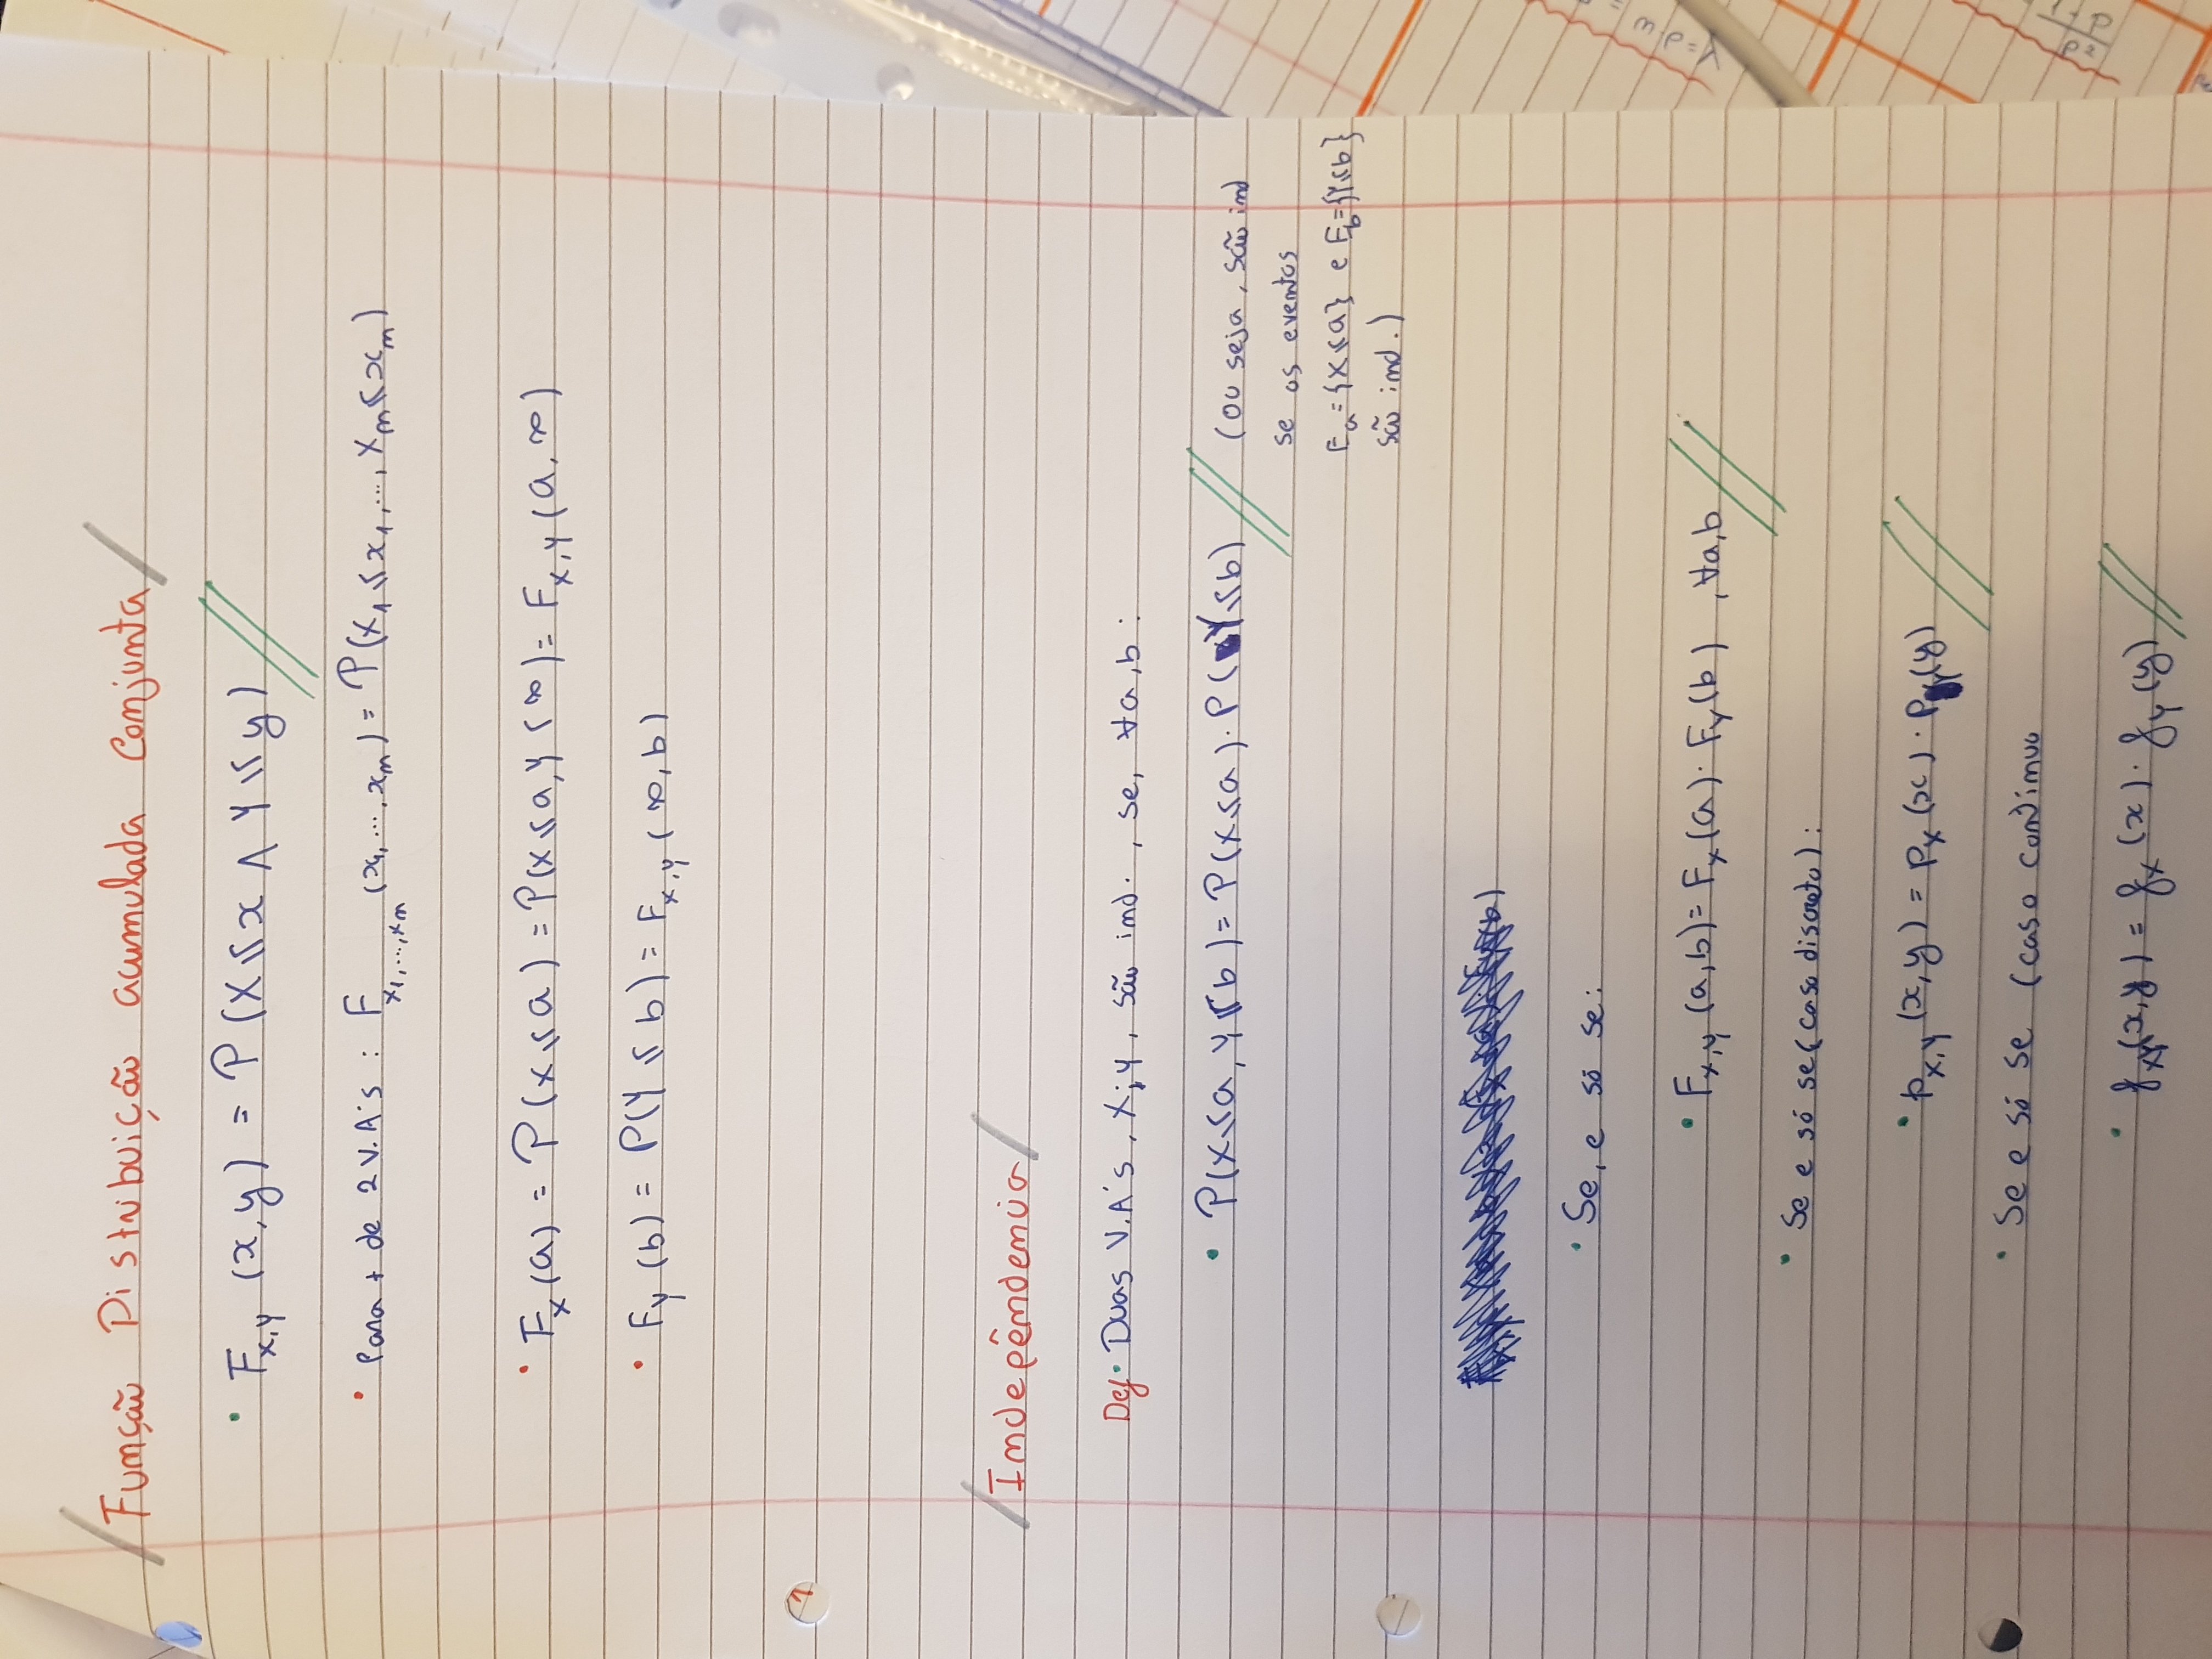 Função Distribuição acumulada Conjunta
• F_{X,Y} (x,y) = P(X ≤ x ∧ Y ≤ y)
• Para + de 2 V.A's : F_{X1,...,Xn} (x1,...,xn) = P(X1 ≤ x1,..., Xn ≤ xn)
• F_X (a) = P(X ≤ a) = P(X ≤ a, Y < ∞) = F_{X,Y} (a, ∞)
• F_Y (b) = P(Y ≤ b) = F_{X,Y} (∞, b)
Indepêndencia
Def • Duas V.A's, X;Y, são ind., se, ∀a,b :
• P(X ≤ a, Y ≤ b) = P(X ≤ a) · P(Y ≤ b) (ou seja, são ind
se os eventos
E_a = {X ≤ a} e E_b = {Y ≤ b}
são ind.)
• Se, e só se:
• F_{X,Y} (a,b) = F_X (a) · F_Y (b) , ∀a,b
• Se e só se (caso discreto) :
• p_{X,Y} (x,y) = p_X (x) · p_Y (y)
• Se e só se (caso continuo
• f_{XY} (x,y) = f_X (x) · f_Y (y)